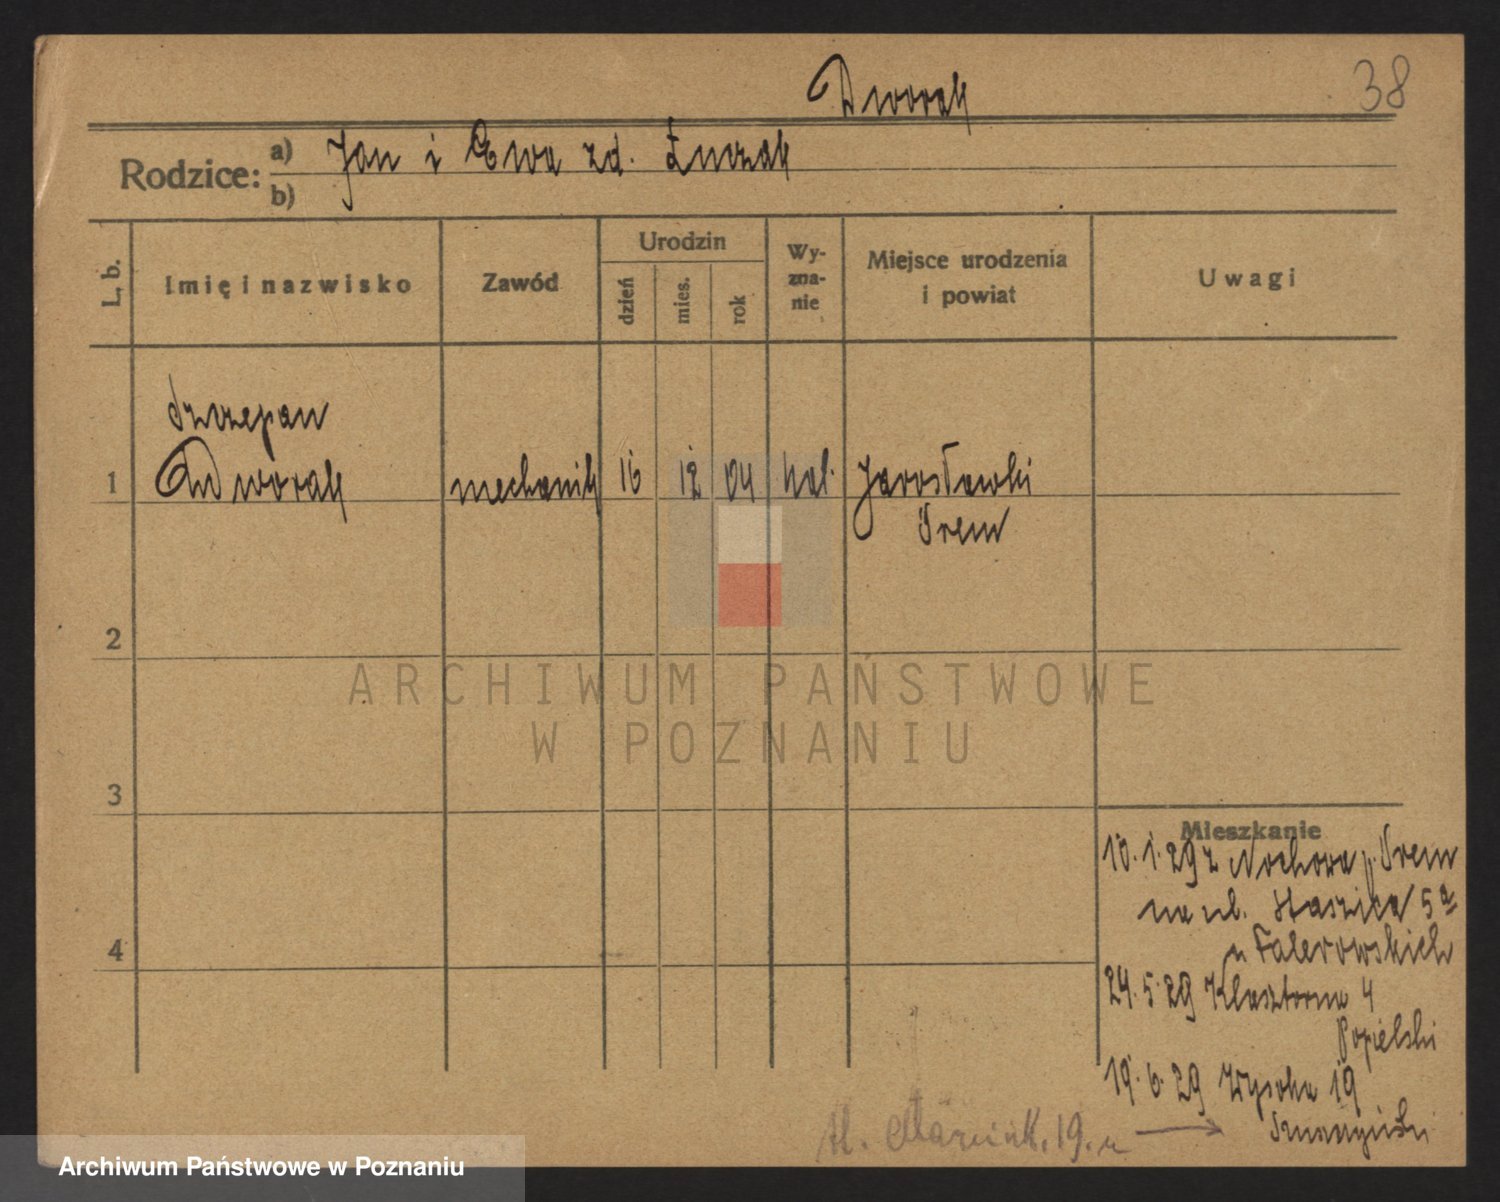 Dworak
38
Rodzice: a) Jan i Ewa zd. Łuczak
b)
L. b.
Imię i nazwisko
Zawód
Urodzin
dzień
mies.
rok
Wy-
zna-
nie
Miejsce urodzenia
i powiat
Uwagi
Szczepan
1 Dworak mechanik 16 12 04 kat. Jarosławki
Śrem
2
ARCHIWUM PAŃSTWOWE
W POZNANIU
3
Mieszkanie
10.1.29 z Nochowa p. Śrem
na ul. Staszica 5a
4
u Falerowskich
24.5.29 Klasztorna 4
Popielski
19.6.29 Wysoka 19
Marcink. 19.
Archiwum Państwowe w Poznaniu